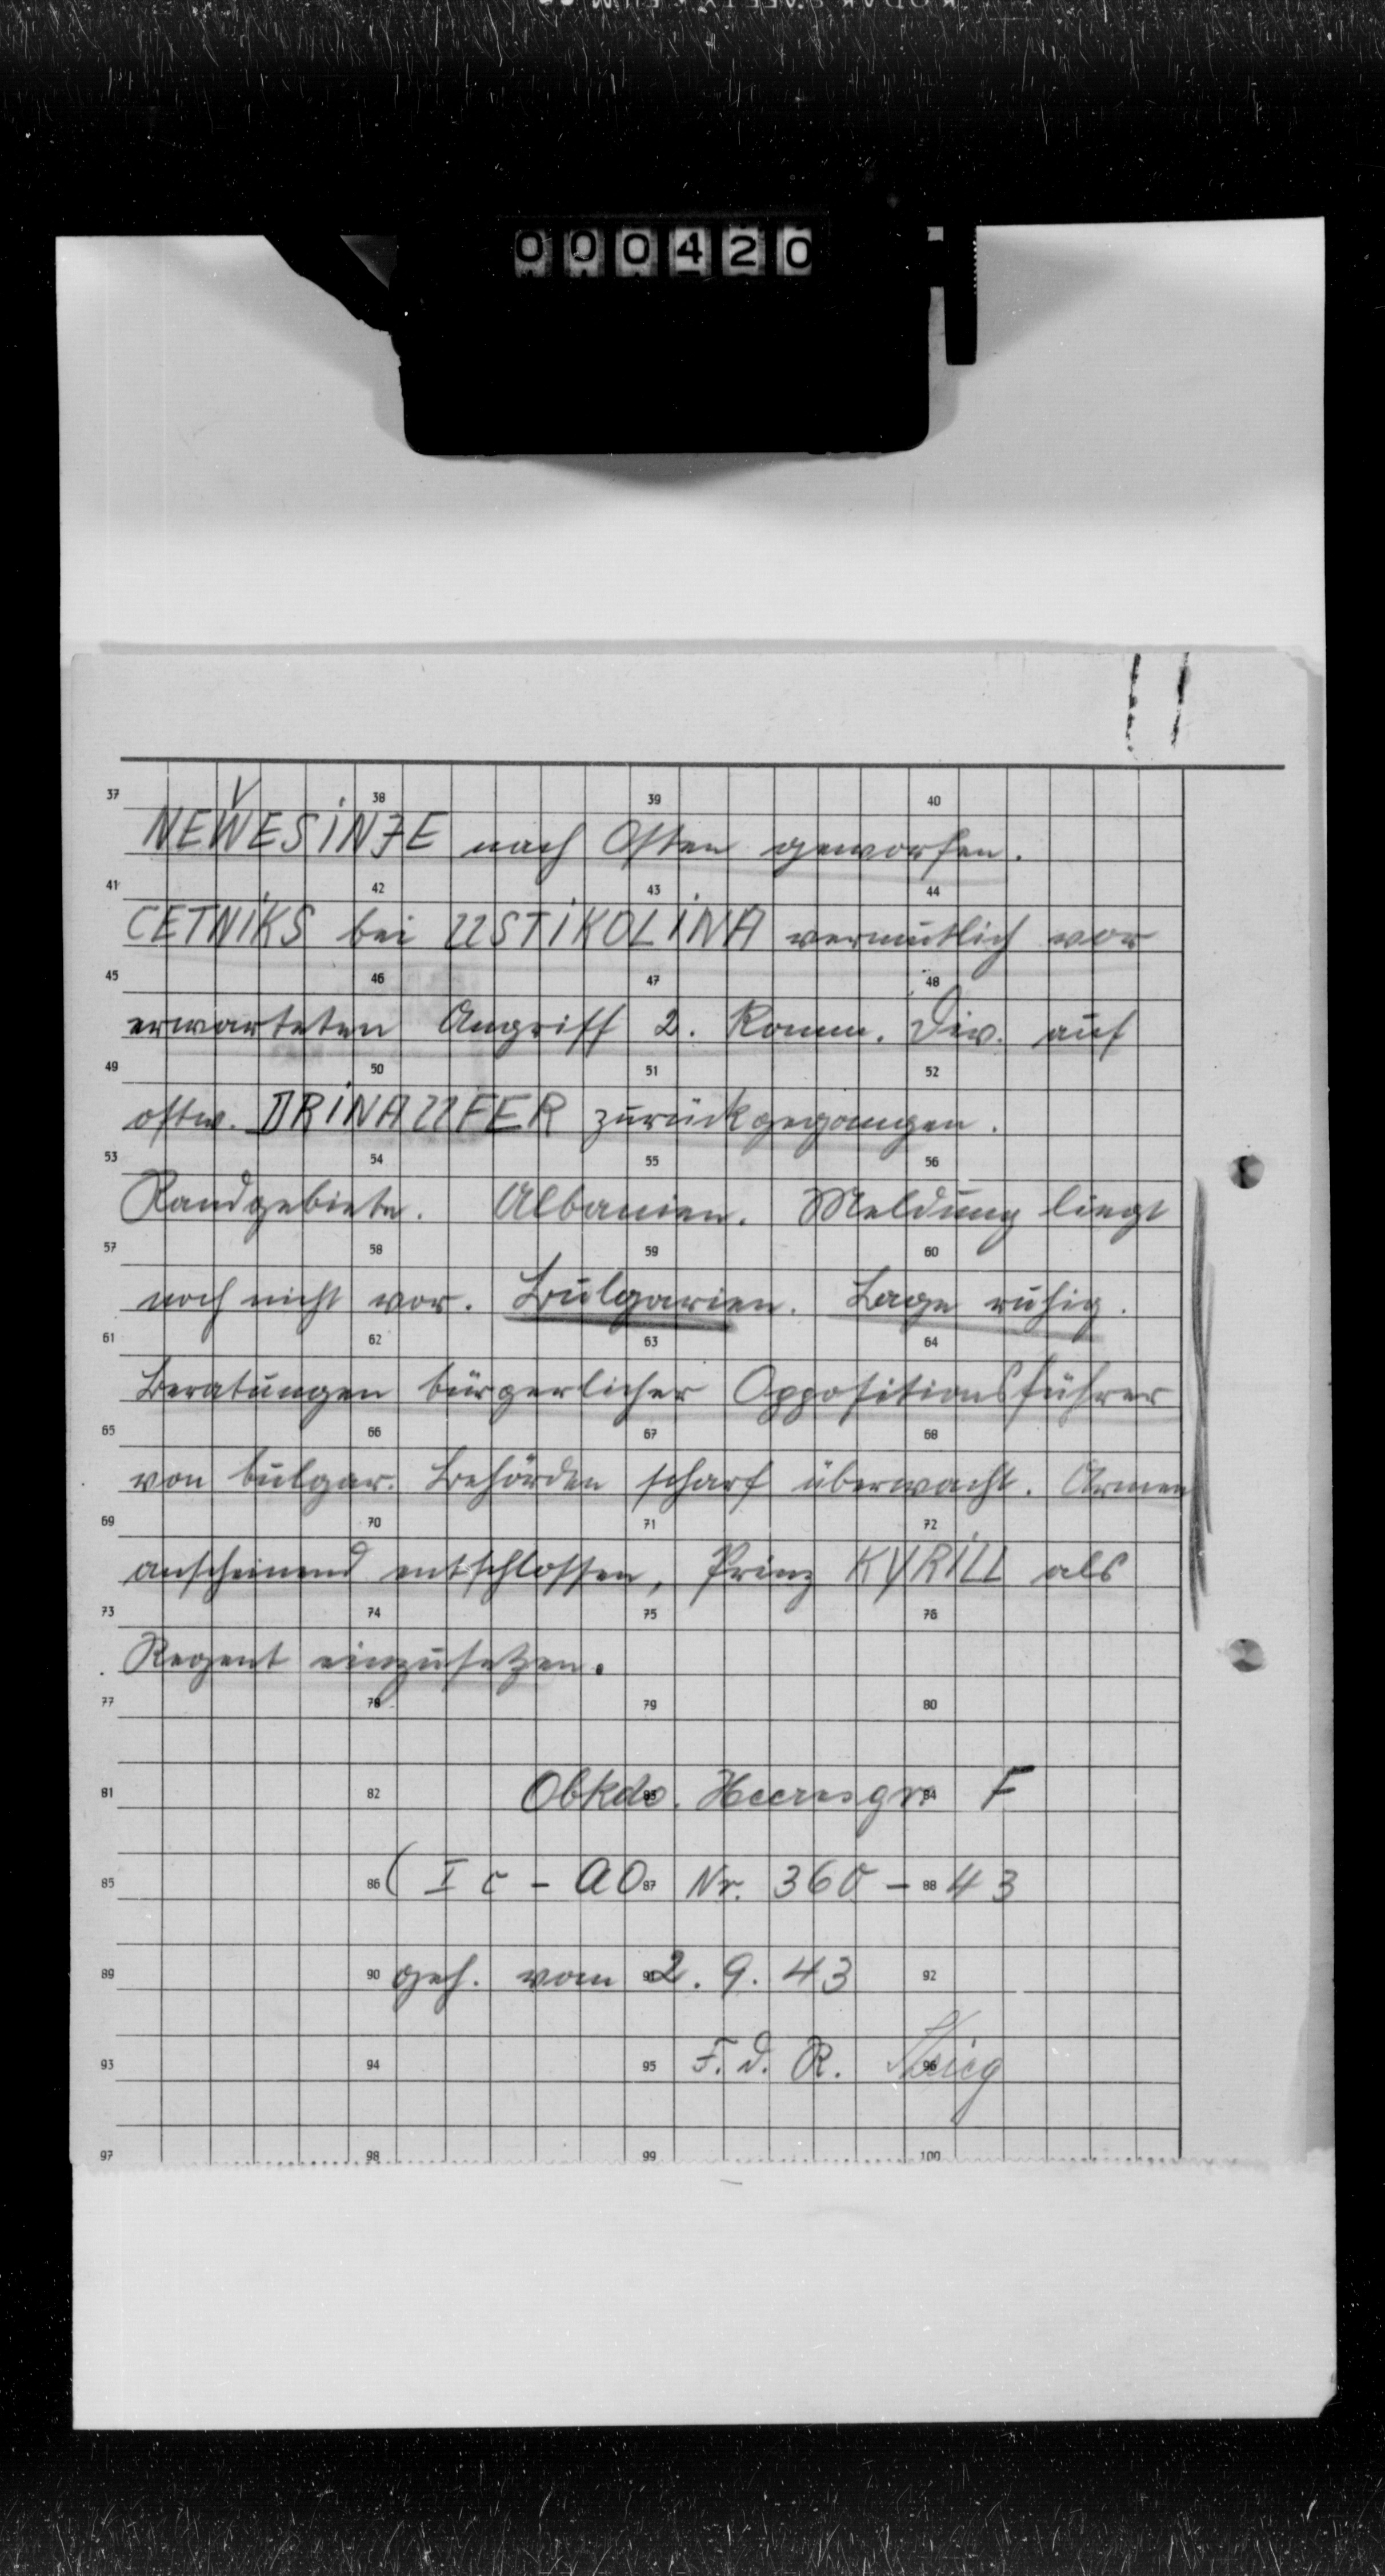 000420
37 38 39 40
NEWESINJE nach Osten geworfen.
41 42 43 44
CETNIKS bei USTIKOLINA vermutlich vor
45 46 47 48
erwarteten Angriff 2. Komm. Div. auf
49 50 51 52
ostw. DRINAUFER zurückgegangen.
53 54 55 56
Randgebiete. Albanien. Meldung liegt
57 58 59 60
noch nicht vor. Bulgarien. Lage ruhig.
61 62 63 64
Beratungen bürgerlicher Oppositionsführer
65 66 67 68
von bulgar. Behörden scharf überwacht. Armee
69 70 71 72
anscheinend entschlossen, Prinz KYRILL als
73 74 75 76
Regent einzusetzen.
77 78 79 80
Obkdo. Heeresgr. F
81 82 83 84
(Ic - AO Nr. 360 - 43
85 86 87 88
geh. vom 2.9.43
89 90 91 92
F.d.R.
93 94 95 96
97 98 99 100